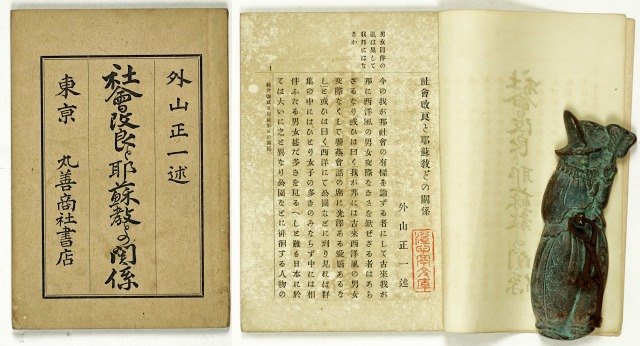 外山正一述
社會改良と耶蘇教との関係
東京 丸善商社書店
社會改良と耶蘇教との關係
外山正一述
男女同伴の
風は果して
我邦にはな
きか
今の我が邦社會の有樣を論ずる者にして古來我が
邦に西洋風の男女交際なきを歎ぜざる者はあら
ざるなり或ひは曰く我が邦には古來西洋風の男女
交際なくして饗燕會話の席に光澤ある愛嬌あるな
しと或ひは曰く西洋にて公園などに到り見れば群
集の中にはひとり女子の多きのみならず中には相
伴ふたる男女甚だ多きを見るべしと雖も日本に於
ては大いに之と異なり公園などに徘徊する人物の